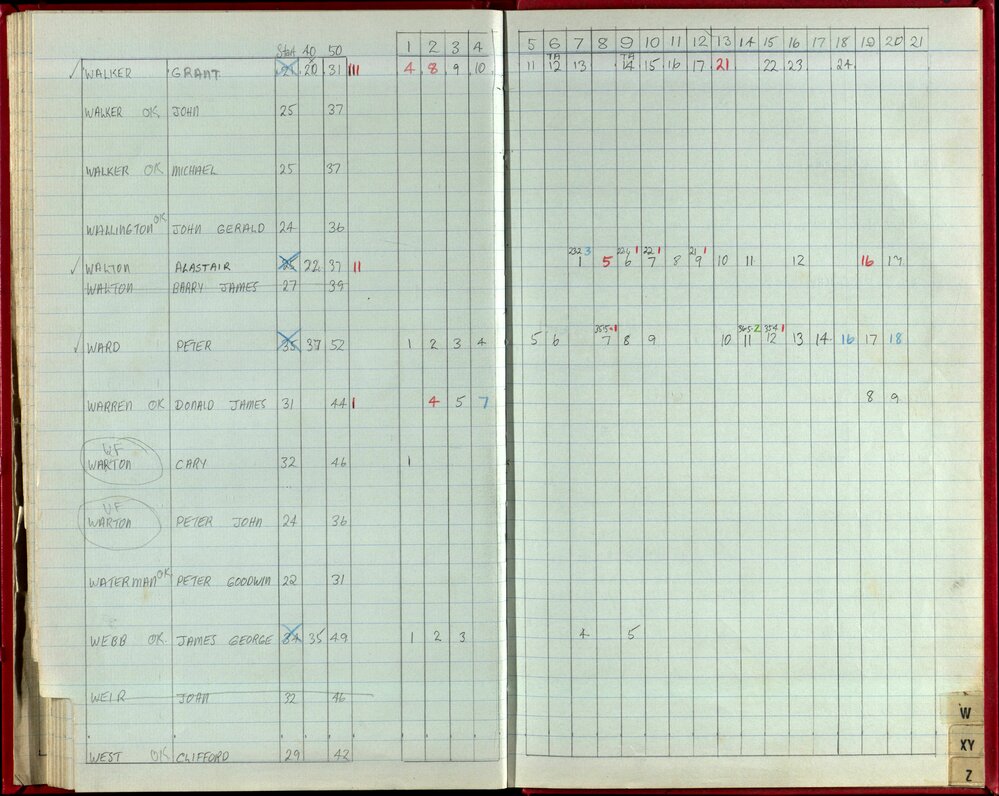 Start 40 50 1 2 3 4 5 6 7 8 9 10 11 12 13 14 15 16 17 18 19 20 21
TA TA
✓ WALKER GRANT 20 31 III 4 8 9 10 11 12 13 14 15 16 17 21 22 23 24
WALKER OK JOHN 25 37
WALKER OK MICHAEL 25 37
WALLINGTON OK JOHN GERALD 24 36
232 3 226 1 22 1 21 1
✓ WALTON ALASTAIR 22 37 II 1 5 6 7 8 9 10 11 12 16 17
WALTON BARRY JAMES 27 39
355 1 365 2 354 1
✓ WARD PETER 35 37 52 1 2 3 4 5 6 7 8 9 10 11 12 13 14 16 17 18
WARREN OK DONALD JAMES 31 44 I 4 5 7 8 9
UF
WARTON CARY 32 46 1
UF
WARTON PETER JOHN 24 36
WATERMAN OK PETER GOODWIN 22 31
WEBB OK JAMES GEORGE 34 35 49 1 2 3 4 5
WEIR JOHN 32 46
WEST OK CLIFFORD 29 42
W
XY
Z